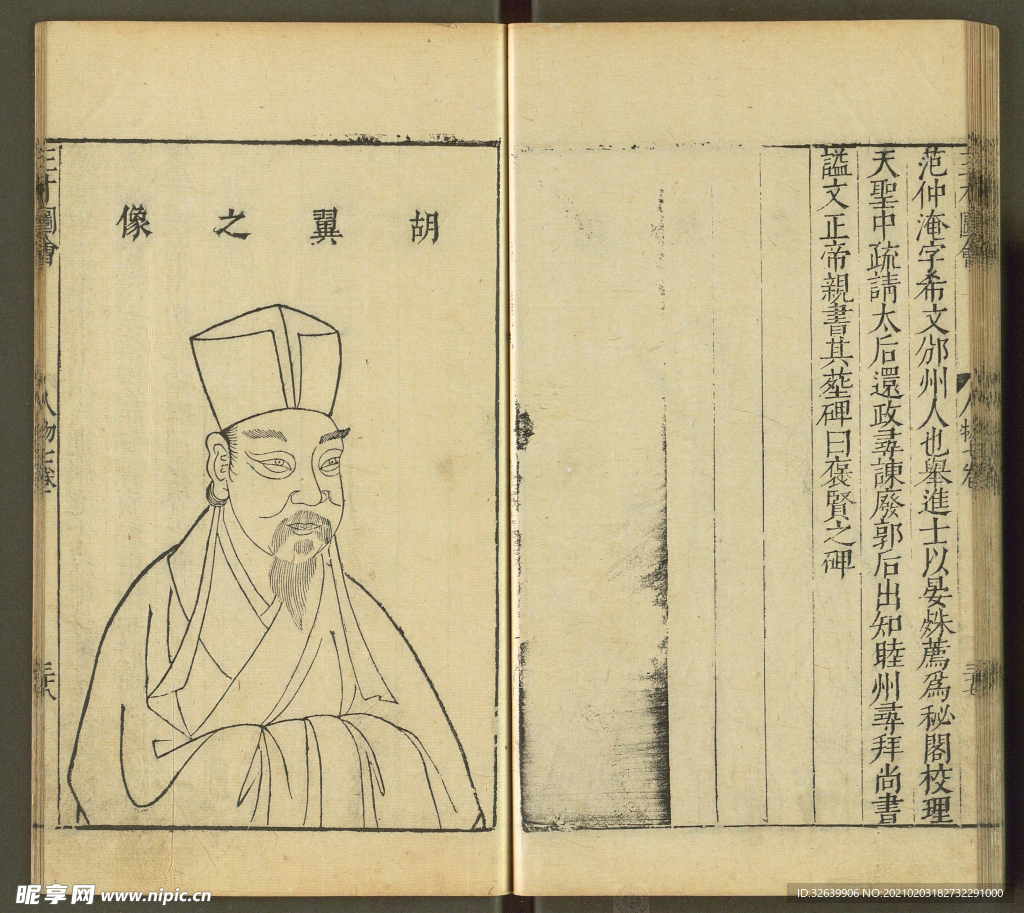 范仲淹字希文邠州人也舉進士以晏殊薦爲秘閣校理
天聖中疏請太后還政尋諫廢郭后出知睦州尋拜尚書
諡文正帝親書其墓碑曰褒賢之碑
胡翼之像
三才圖會
人物七卷
三十八
昵享网 www.nipic.cn
ID:32639906 NO:20210203182732291000